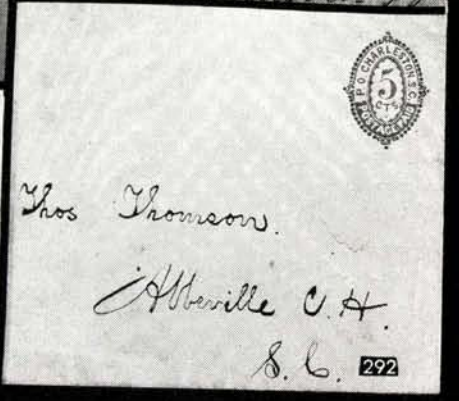 P.O. CHARLESTON. S.C.
5
CTS
POSTAGE PAID
Thos Thomson.
Abbeville C. H.
S. C. 292